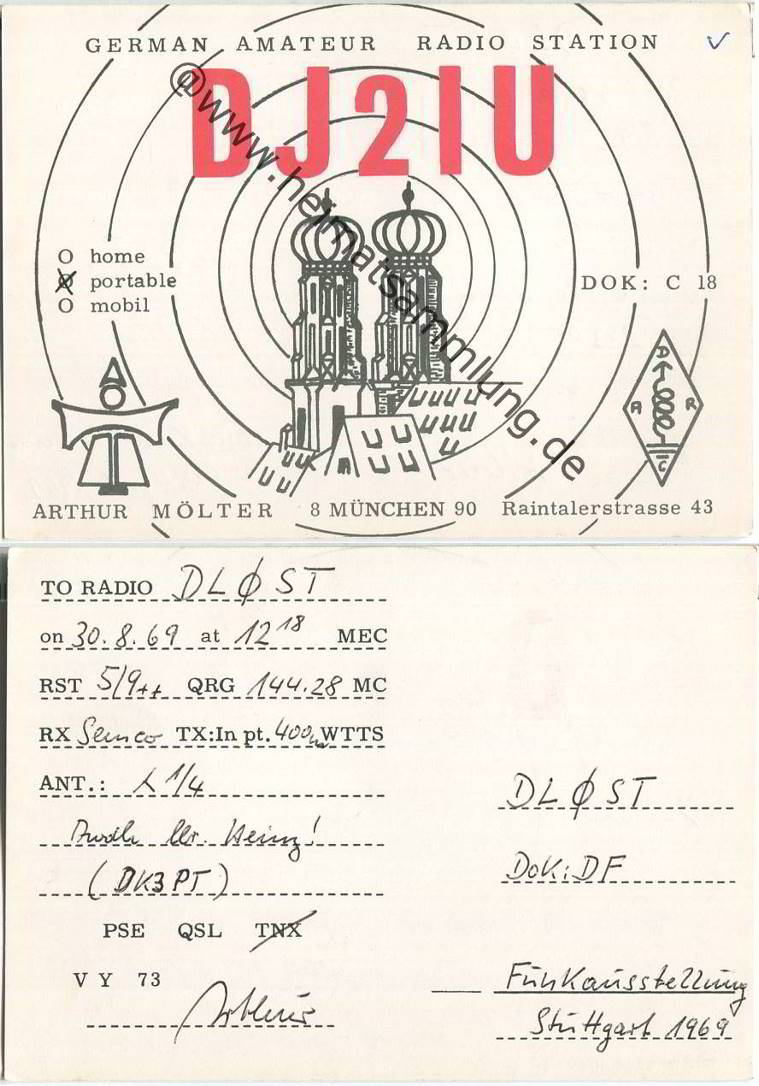 GERMAN AMATEUR RADIO STATION
DJ2IU
@www.heimatsammlung.de
O home
O portable
O mobil
DOK: C 18
D
A R
C
ARTHUR MÖLTER 8 MÜNCHEN 90 Raintalerstrasse 43
TO RADIO DLØST
on 30.8.69 at 12 18 MEC
RST 5/9++ QRG 144.28 MC
RX Semco TX: In pt. 400 WTTS
ANT.: λ 1/4
Heinz!
(DK3PT)
PSE QSL TNX
V Y 73
Arthur
DLØST
DOK: DF
Funkausstellung
Stuttgart 1969